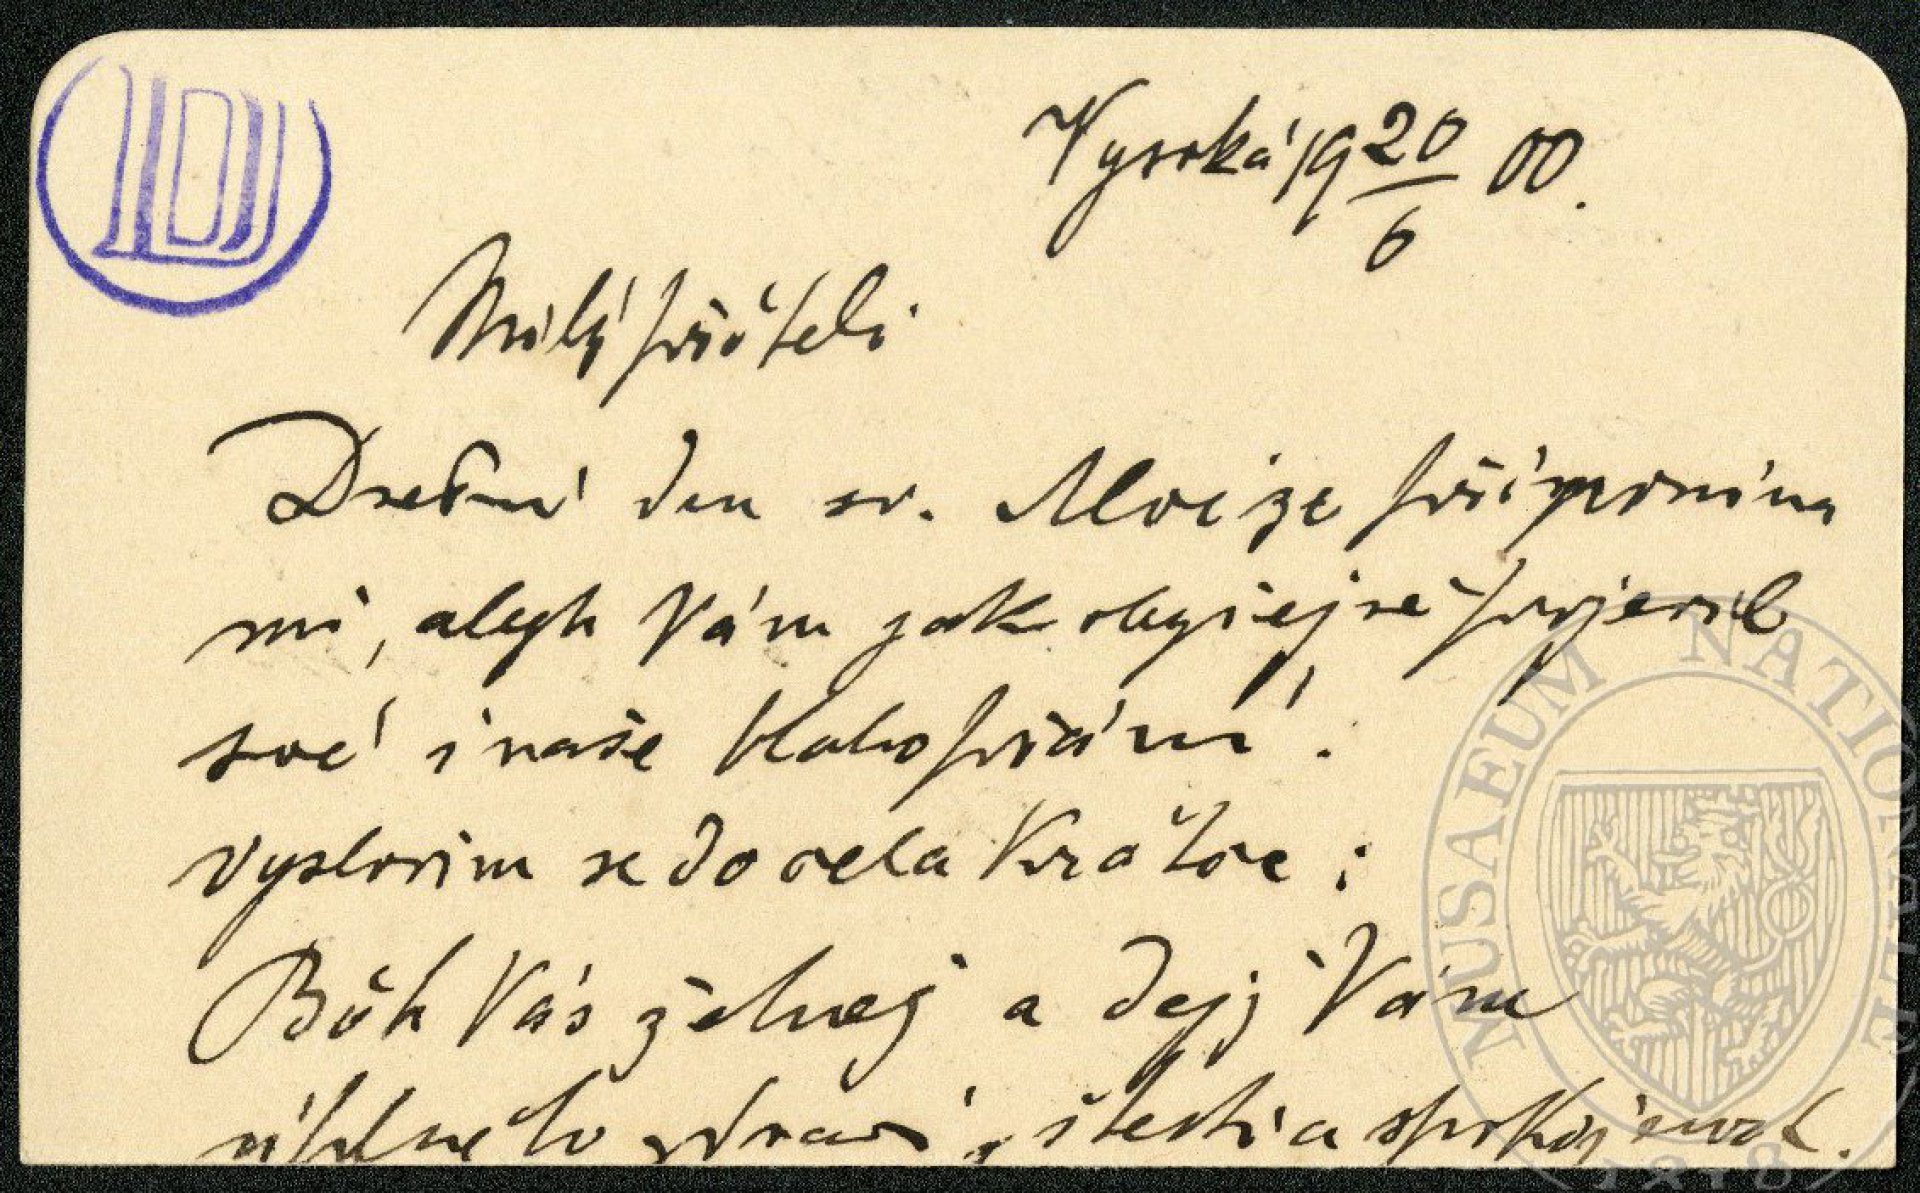 Vysoká 19 20/6 00.
Milý příteli
Dnešní den sv. Aloize připomíná
mi, abych Vám jak obyčejně projevil
své i naše blahopřání.
vyslovím se docela krátce:
Bůh Vás žehnej a dejž Vám
úplného zdraví, štěstí a spokojenost.
MUSAEUM NATIONALE
1818